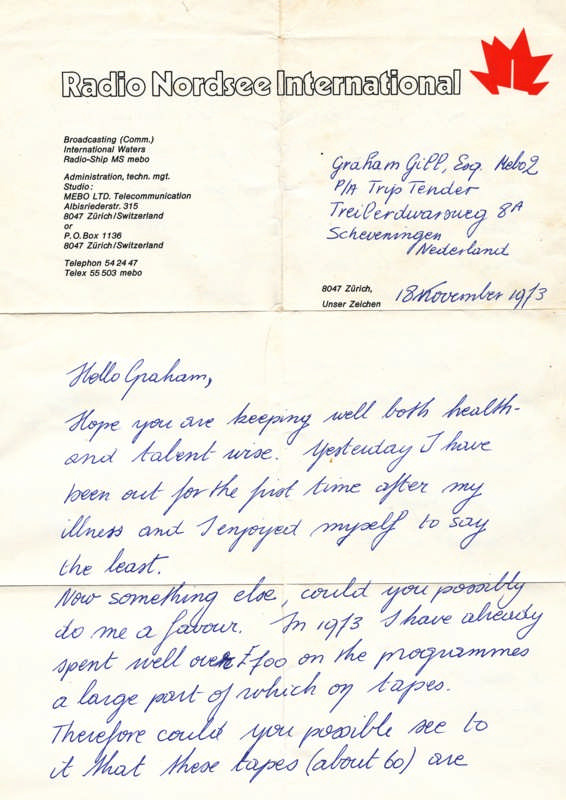 Radio Nordsee International
Broadcasting (Comm.)
International Waters
Radio-Ship MS mebo
Administration, techn. mgt.
Studio:
MEBO LTD. Telecommunication
Albisriederstr. 315
8047 Zürich/Switzerland
or
P.O. Box 1136
8047 Zürich/Switzerland
Telephon 54 24 47
Telex 55 503 mebo
Graham Gill, Esq. Mebo 2
P/A Trip Tender
Treilerdwarsweg 8A
Scheveningen
Nederland
8047 Zürich,
Unser Zeichen
18 November 1973
Hello Graham,
Hope you are keeping well both health-
and talent wise. Yesterday I have
been out for the first time after my
illness and I enjoyed myself to say
the least.
Now something else, could you possibly
do me a favour. In 1973 I have already
spent well over on the programmes
a large part of which on tapes.
Therefore could you possible see to
it that these tapes (about 60) are